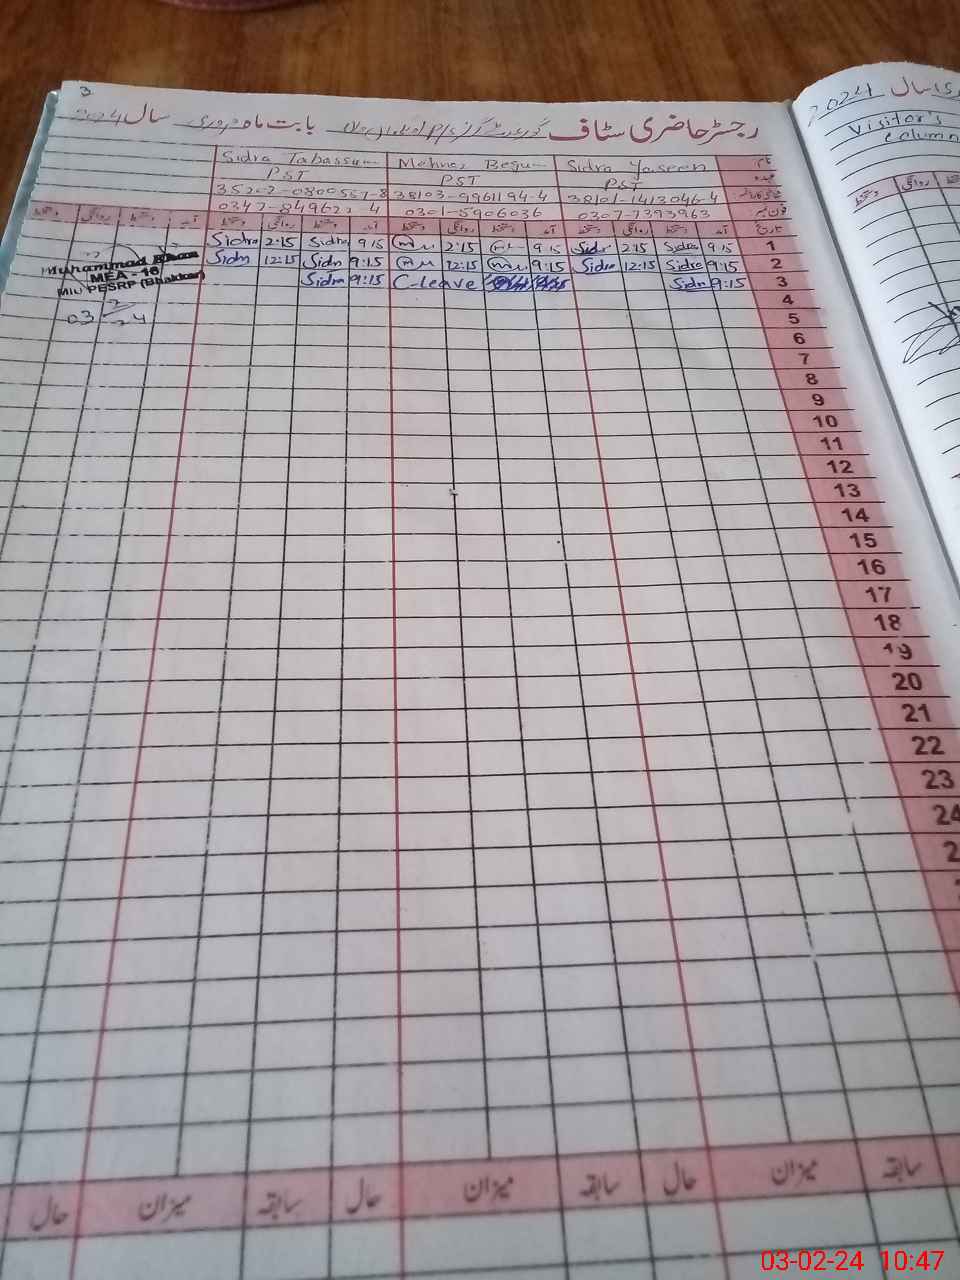 3
رجسٹر حاضری سٹاف گورنمنٹ گرلز P/S بابت ماہ فروری سال 2024
نام Sidra Yaseen Mehnaz Begum Sidra Tabassum
عہدہ PST PST PST
38101-1413046-4 38103-9961194-4 35202-0800557-8
فون نمبر 0307-7393963 0301-5906036
تاریخ آمد دستخط روانگی دستخط آمد دستخط روانگی دستخط آمد دستخط روانگی دستخط آمد دستخط روانگی دستخط
Sidra 2:15 Sidra 9:15 2:15 9:15 Sidra 2:15 Sidra 9:15 1
Sidra 12:15 Sidra 9:15 12:15 9:15 Sidra 12:15 Sidra 9:15 2
Sidra 9:15 C-leave Sidra 9:15 3
Muhammad Khan
MEA - 16
MIU PESRP (Bhakkar)
03-2-24
4
5
6
7
8
9
10
11
12
13
14
15
16
17
18
19
20
21
22
23
24
2
سابقہ میزان حال سابقہ میزان حال سابقہ میزان حال
سال 2024
Visitor's
column
روانگی دستخط
03-02-24 10:47